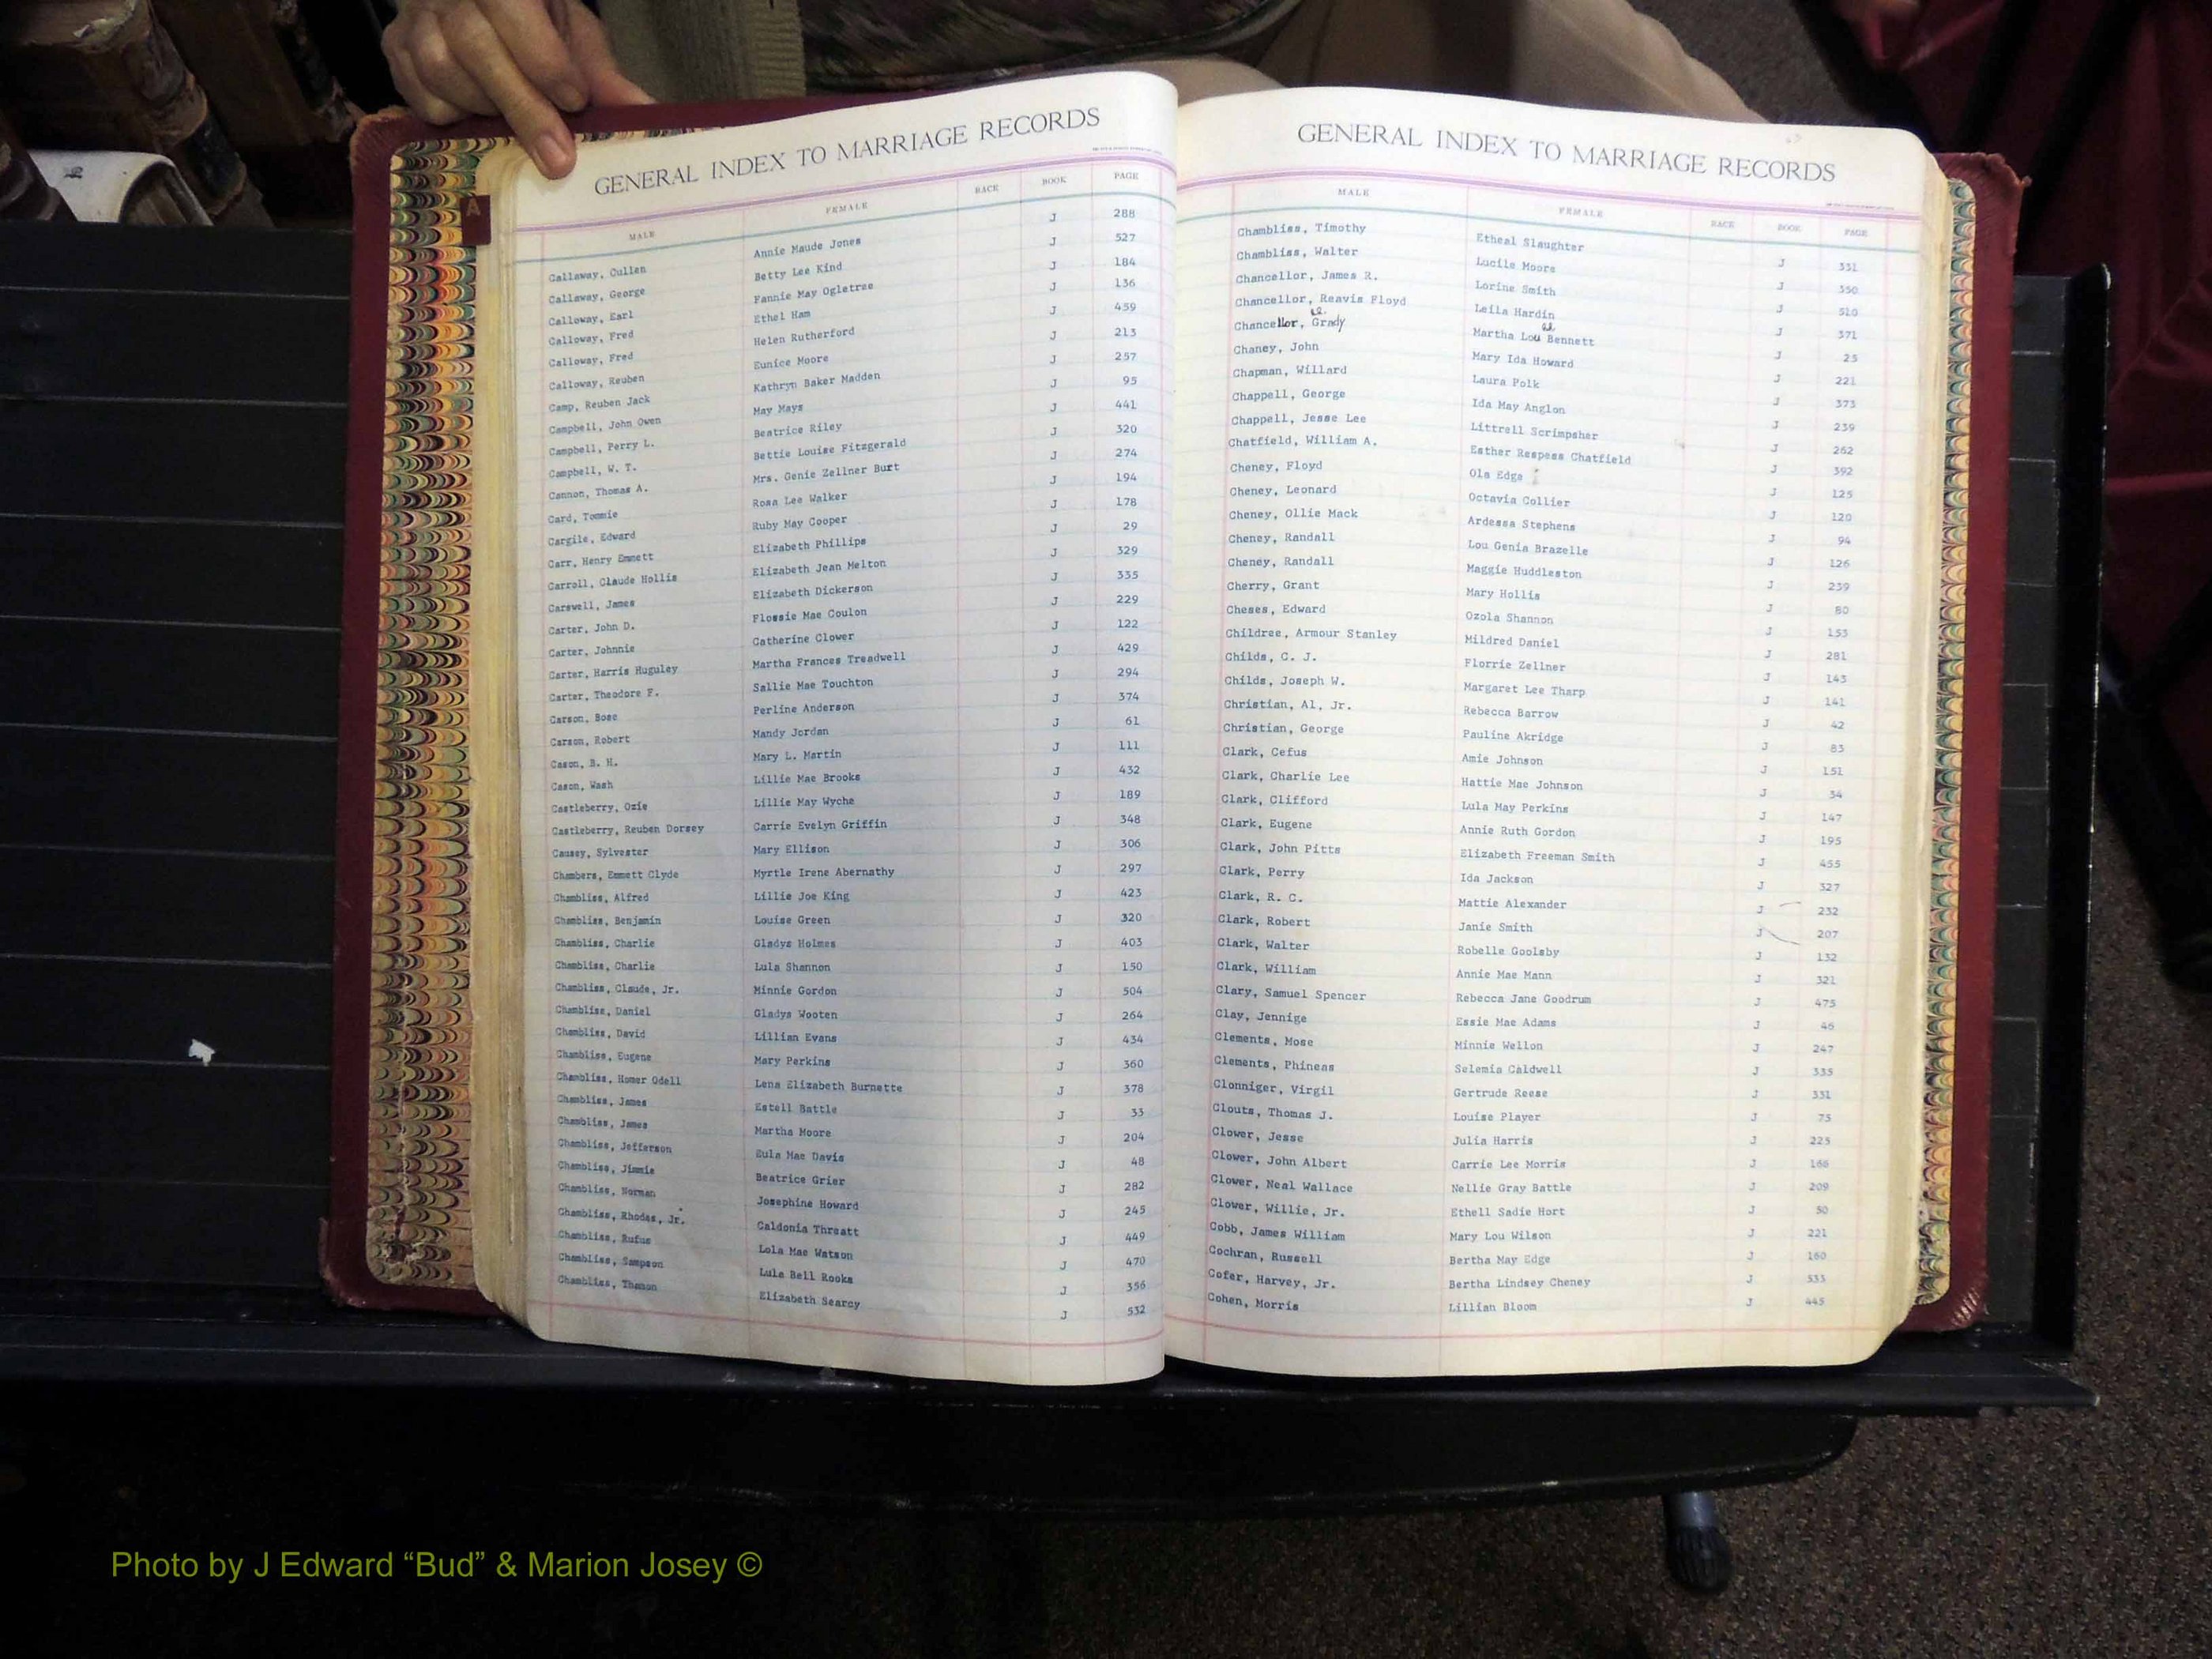 GENERAL INDEX TO MARRIAGE RECORDS
MALE FEMALE RACE BOOK PAGE
Callaway, Cullen Annie Maude Jones J 288
Callaway, George Betty Lee Kind J 527
Calloway, Earl Fannie May Ogletree J 184
Calloway, Fred Ethel Ham J 136
Calloway, Fred Helen Rutherford J 459
Calloway, Reuben Eunice Moore J 213
Camp, Reuben Jack Kathryn Baker Madden J 257
Campbell, John Owen May Mays J 95
Campbell, Perry L. Beatrice Riley J 441
Campbell, W. T. Bettie Louise Fitzgerald J 320
Cannon, Thomas A. Mrs. Genie Zellner Burt J 274
Card, Tommie Rosa Lee Walker J 194
Cargile, Edward Ruby May Cooper J 178
Carr, Henry Emmett Elizabeth Phillips J 29
Carroll, Claude Hollis Elizabeth Jean Melton J 329
Carswell, James Elizabeth Dickerson J 335
Carter, John D. Flossie Mae Coulon J 229
Carter, Johnnie Catherine Clower J 122
Carter, Harris Huguley Martha Frances Treadwell J 429
Carter, Theodore F. Sallie Mae Touchton J 294
Carson, Bose Perline Anderson J 374
Carson, Robert Mandy Jordan J 61
Cason, B. H. Mary L. Martin J 111
Cason, Wash Lillie Mae Brooks J 432
Castleberry, Ozie Lillie May Wyche J 189
Castleberry, Reuben Dorsey Carrie Evelyn Griffin J 348
Causey, Sylvester Mary Ellison J 306
Chambers, Emmett Clyde Myrtle Irene Abernathy J 297
Chambliss, Alfred Lillie Joe King J 423
Chambliss, Benjamin Louise Green J 320
Chambliss, Charlie Gladys Holmes J 403
Chambliss, Charlie Lula Shannon J 150
Chambliss, Claude, Jr. Minnie Gordon J 504
Chambliss, Daniel Gladys Wooten J 264
Chambliss, David Lillian Evans J 434
Chambliss, Eugene Mary Perkins J 360
Chambliss, Homer Odell Lena Elizabeth Burnette J 378
Chambliss, James Estell Battle J 33
Chambliss, James Martha Moore J 204
Chambliss, Jefferson Eula Mae Davis J 48
Chambliss, Jimmie Beatrice Grier J 282
Chambliss, Norman Josephine Howard J 245
Chambliss, Rhodes, Jr. Caldonia Threatt J 449
Chambliss, Rufus Lola Mae Watson J 470
Chambliss, Sampson Lula Bell Rooks J 356
Chambliss, Thamon Elizabeth Searcy J 532
GENERAL INDEX TO MARRIAGE RECORDS
MALE FEMALE RACE BOOK PAGE
Chambliss, Timothy Etheal Slaughter J 331
Chambliss, Walter Lucile Moore J 350
Chancellor, James R. Lorine Smith J 510
Chancellor, Reavis Floyd Leila Hardin J 371
Chancellor, Grady Martha Lou Bennett J 25
Chaney, John Mary Ida Howard J 221
Chapman, Willard Laura Polk J 373
Chappell, George Ida May Anglon J 239
Chappell, Jesse Lee Littrell Scrimpsher J 262
Chatfield, William A. Esther Respess Chatfield J 392
Cheney, Floyd Ola Edge J 125
Cheney, Leonard Octavia Collier J 120
Cheney, Ollie Mack Ardessa Stephens J 94
Cheney, Randall Lou Genia Brazelle J 126
Cheney, Randall Maggie Huddleston J 239
Cherry, Grant Mary Hollis J 80
Cheses, Edward Ozola Shannon J 153
Childree, Armour Stanley Mildred Daniel J 281
Childs, C. J. Florrie Zellner J 143
Childs, Joseph W. Margaret Lee Tharp J 141
Christian, Al, Jr. Rebecca Barrow J 42
Christian, George Pauline Akridge J 83
Clark, Cefus Amie Johnson J 151
Clark, Charlie Lee Hattie Mae Johnson J 34
Clark, Clifford Lula May Perkins J 147
Clark, Eugene Annie Ruth Gordon J 195
Clark, John Pitts Elizabeth Freeman Smith J 455
Clark, Perry Ida Jackson J 327
Clark, R. C. Mattie Alexander J 232
Clark, Robert Janie Smith J 207
Clark, Walter Robelle Goolsby J 132
Clark, William Annie Mae Mann J 321
Clary, Samuel Spencer Rebecca Jane Goodrum J 475
Clay, Jennige Essie Mae Adams J 46
Clements, Mose Minnie Wellon J 247
Clements, Phineas Selemia Caldwell J 335
Clonniger, Virgil Gertrude Reese J 331
Clouts, Thomas J. Louise Player J 75
Clower, Jesse Julia Harris J 225
Clower, John Albert Carrie Lee Morris J 166
Clower, Neal Wallace Nellie Gray Battle J 209
Clower, Willie, Jr. Ethell Sadie Hort J 50
Cobb, James William Mary Lou Wilson J 221
Cochran, Russell Bertha May Edge J 160
Cofer, Harvey, Jr. Bertha Lindsey Cheney J 533
Cohen, Morris Lillian Bloom J 445
Photo by J Edward “Bud” & Marion Josey ©